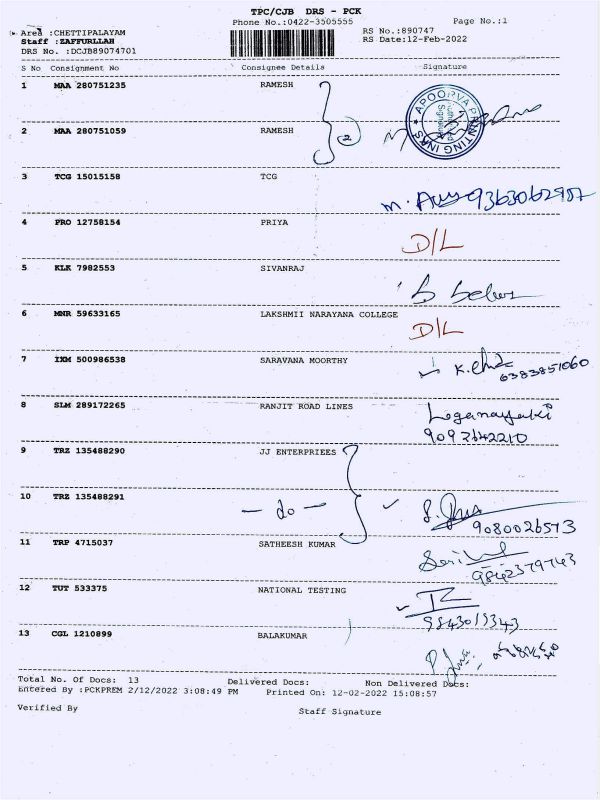 TPC/CJB DRS - PCK
Phone No.:0422-3505555 Page No.:1
Area :CHETTIPALAYAM RS No.:890747
Staff :ZAFFURLLAH RS Date:12-Feb-2022
DRS No. :DCJB89074701
S No Consignment No Consignee Details Signature
1 MAA 280751235 RAMESH
APOORVA PRINTING INKS
2 MAA 280751059 RAMESH 2
3 TCG 15015158 TCG
M. 9363062987
4 PRO 12758154 PRIYA
D/L
5 KLK 7982553 SIVANRAJ
6 MNR 59633165 LAKSHMII NARAYANA COLLEGE
D/L
7 IXM 500986538 SARAVANA MOORTHY
6383851060
8 SLM 289172265 RANJIT ROAD LINES Loganayaki
9092642210
9 TRZ 135488290 JJ ENTERPRIEES
10 TRZ 135488291 - do -
9080026573
11 TRP 4715037 SATHEESH KUMAR
9842379743
12 TUT 533375 NATIONAL TESTING
9843019343
13 CGL 1210899 BALAKUMAR
Total No. Of Docs: 13 Delivered Docs: Non Delivered Docs:
Entered By :PCKPREM 2/12/2022 3:08:49 PM Printed On: 12-02-2022 15:08:57
Verified By Staff Signature